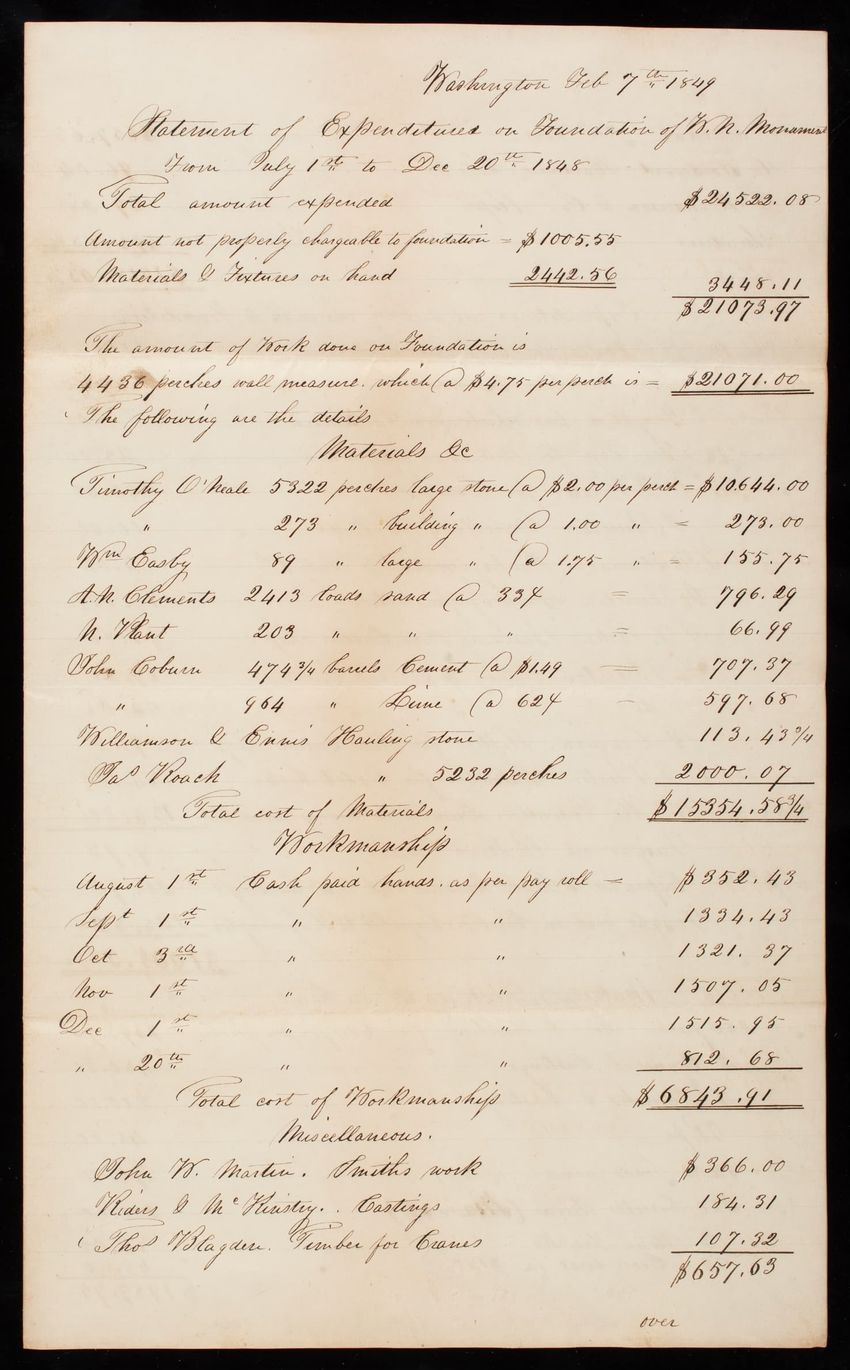 Washington Feb 7th 1849
Statement of Expenditures on Foundation of W. N. Monument
From July 1st to Dec 20th 1848
Total amount expended $24522.08
Amount not properly chargeable to foundation = $1005.55
Materials & Fixtures on hand 2442.56 3448.11
$21073.97
The amount of Work done on Foundation is
4436 perches wall measure. which @ $4.75 per perch is = $21071.00
The following are the details
Materials &c
Timothy O'Neale 5322 perches large stone @ $2.00 per perch = $10.644.00
" 273 " building " @ 1.00 " = 273.00
Wm Easby 89 " large " @ 1.75 " = 155.75
A.N. Clements 2413 loads sand @ 33¢ = 796.29
N. Plant 203 " " " = 66.99
John Coburn 474 3/4 barrels Cement @ $1.49 = 707.37
" 964 " Lime @ 62¢ - 597.68
Williamson & Ennis Hauling stone 113.43 3/4
Jas Roach " 5232 perches 2000.07
Total cost of Materials $15354.58 3/4
Workmanship
August 1st Cash paid hands. as per pay roll = $352.43
Sept 1st " " 1334.43
Oct 3rd " " 1321.37
Nov 1st " " 1507.05
Dec 1st " " 1515.95
" 20th " " 812.68
Total cost of Workmanship $6843.91
Miscellaneous.
John W. Martin. Smiths work $366.00
Riders & McKinstry.. Castings 184.31
Thos Blagden. Timber for Cranes 107.32
$657.63
over